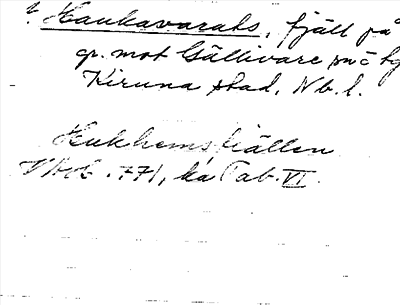 Haukavarats, fjäll på
gr. mot Gällivare
Kiruna stad, Nb. l.
Hukhemsfjällen
771, ka Tab. VI.